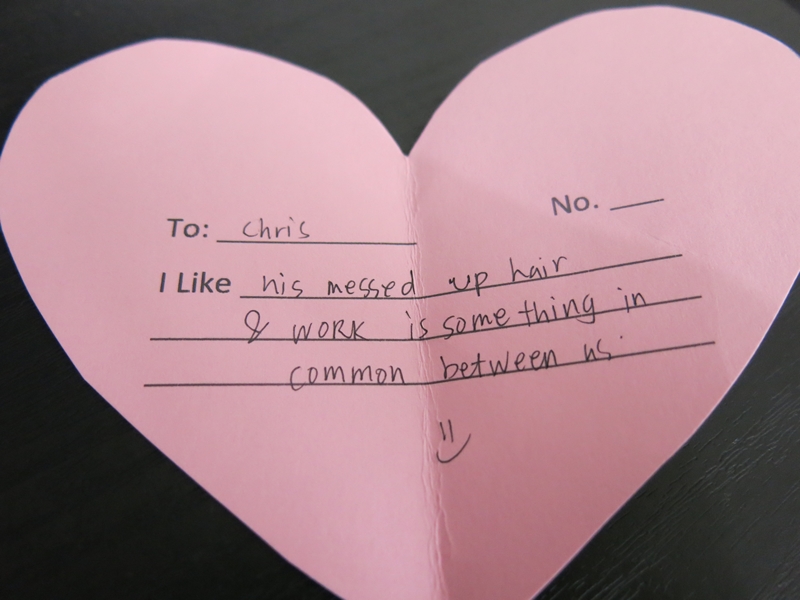 No. ___
To: Chris
I Like his messed up hair
& WORK is something in
common between us.